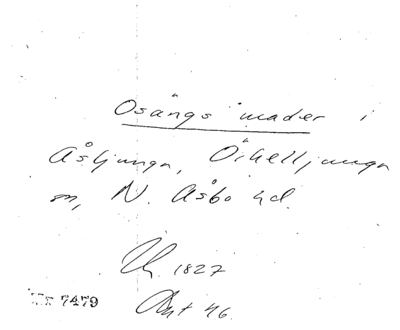 Osängs mader i
Åsljunga, Örkelljunga
sn, N. Åsbo hd.
1827
7479